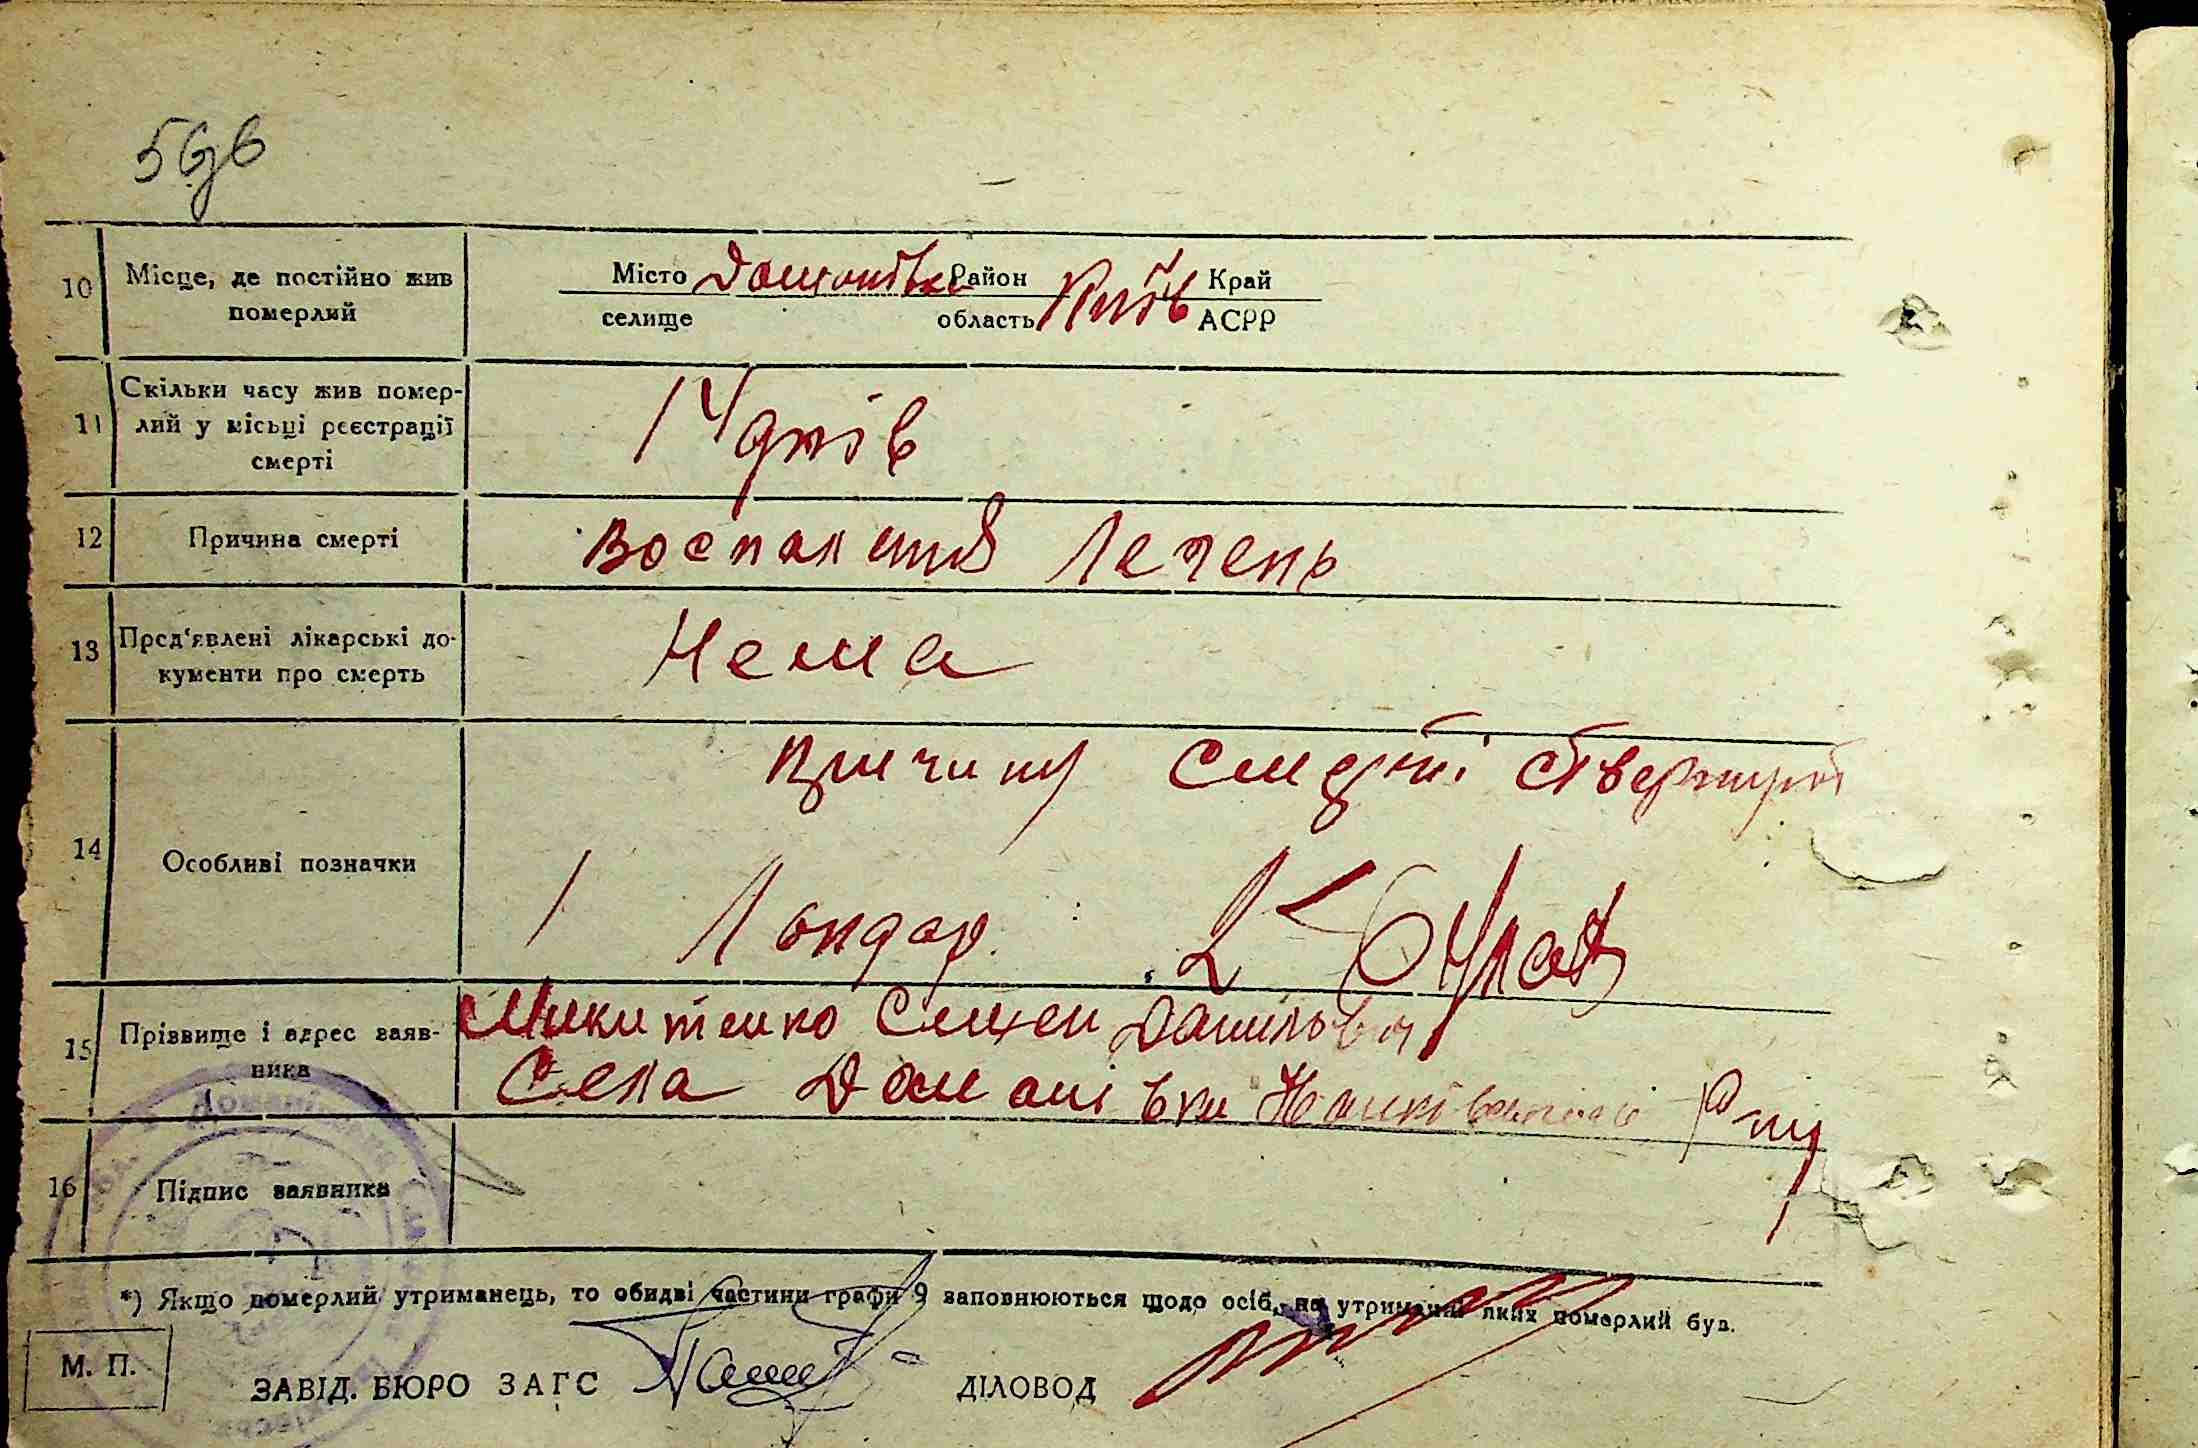 10 Місце, де постійно жив померлий
Місто Доманівка Район Київ Край
селище область АСРР
11 Скільки часу жив померлий у місьці реєстрації смерті
14 днів
12 Причина смерті
Воспаления Легень
13 Пред'явлені лікарські документи про смерть
Нема
14 Особливі позначки
Причину смерті ствержують
1 Лондар 2
15 Прізвище і адрес заявника
Микитенко Семен Данильович
Села Доманівки
16 Підпис заявника
*) Якщо померлий утриманець, то обидві частини графи 9 заповнюються щодо осіб, на утриманні яких померлий був.
М. П.
ЗАВІД. БЮРО ЗАГС ДІЛОВОД